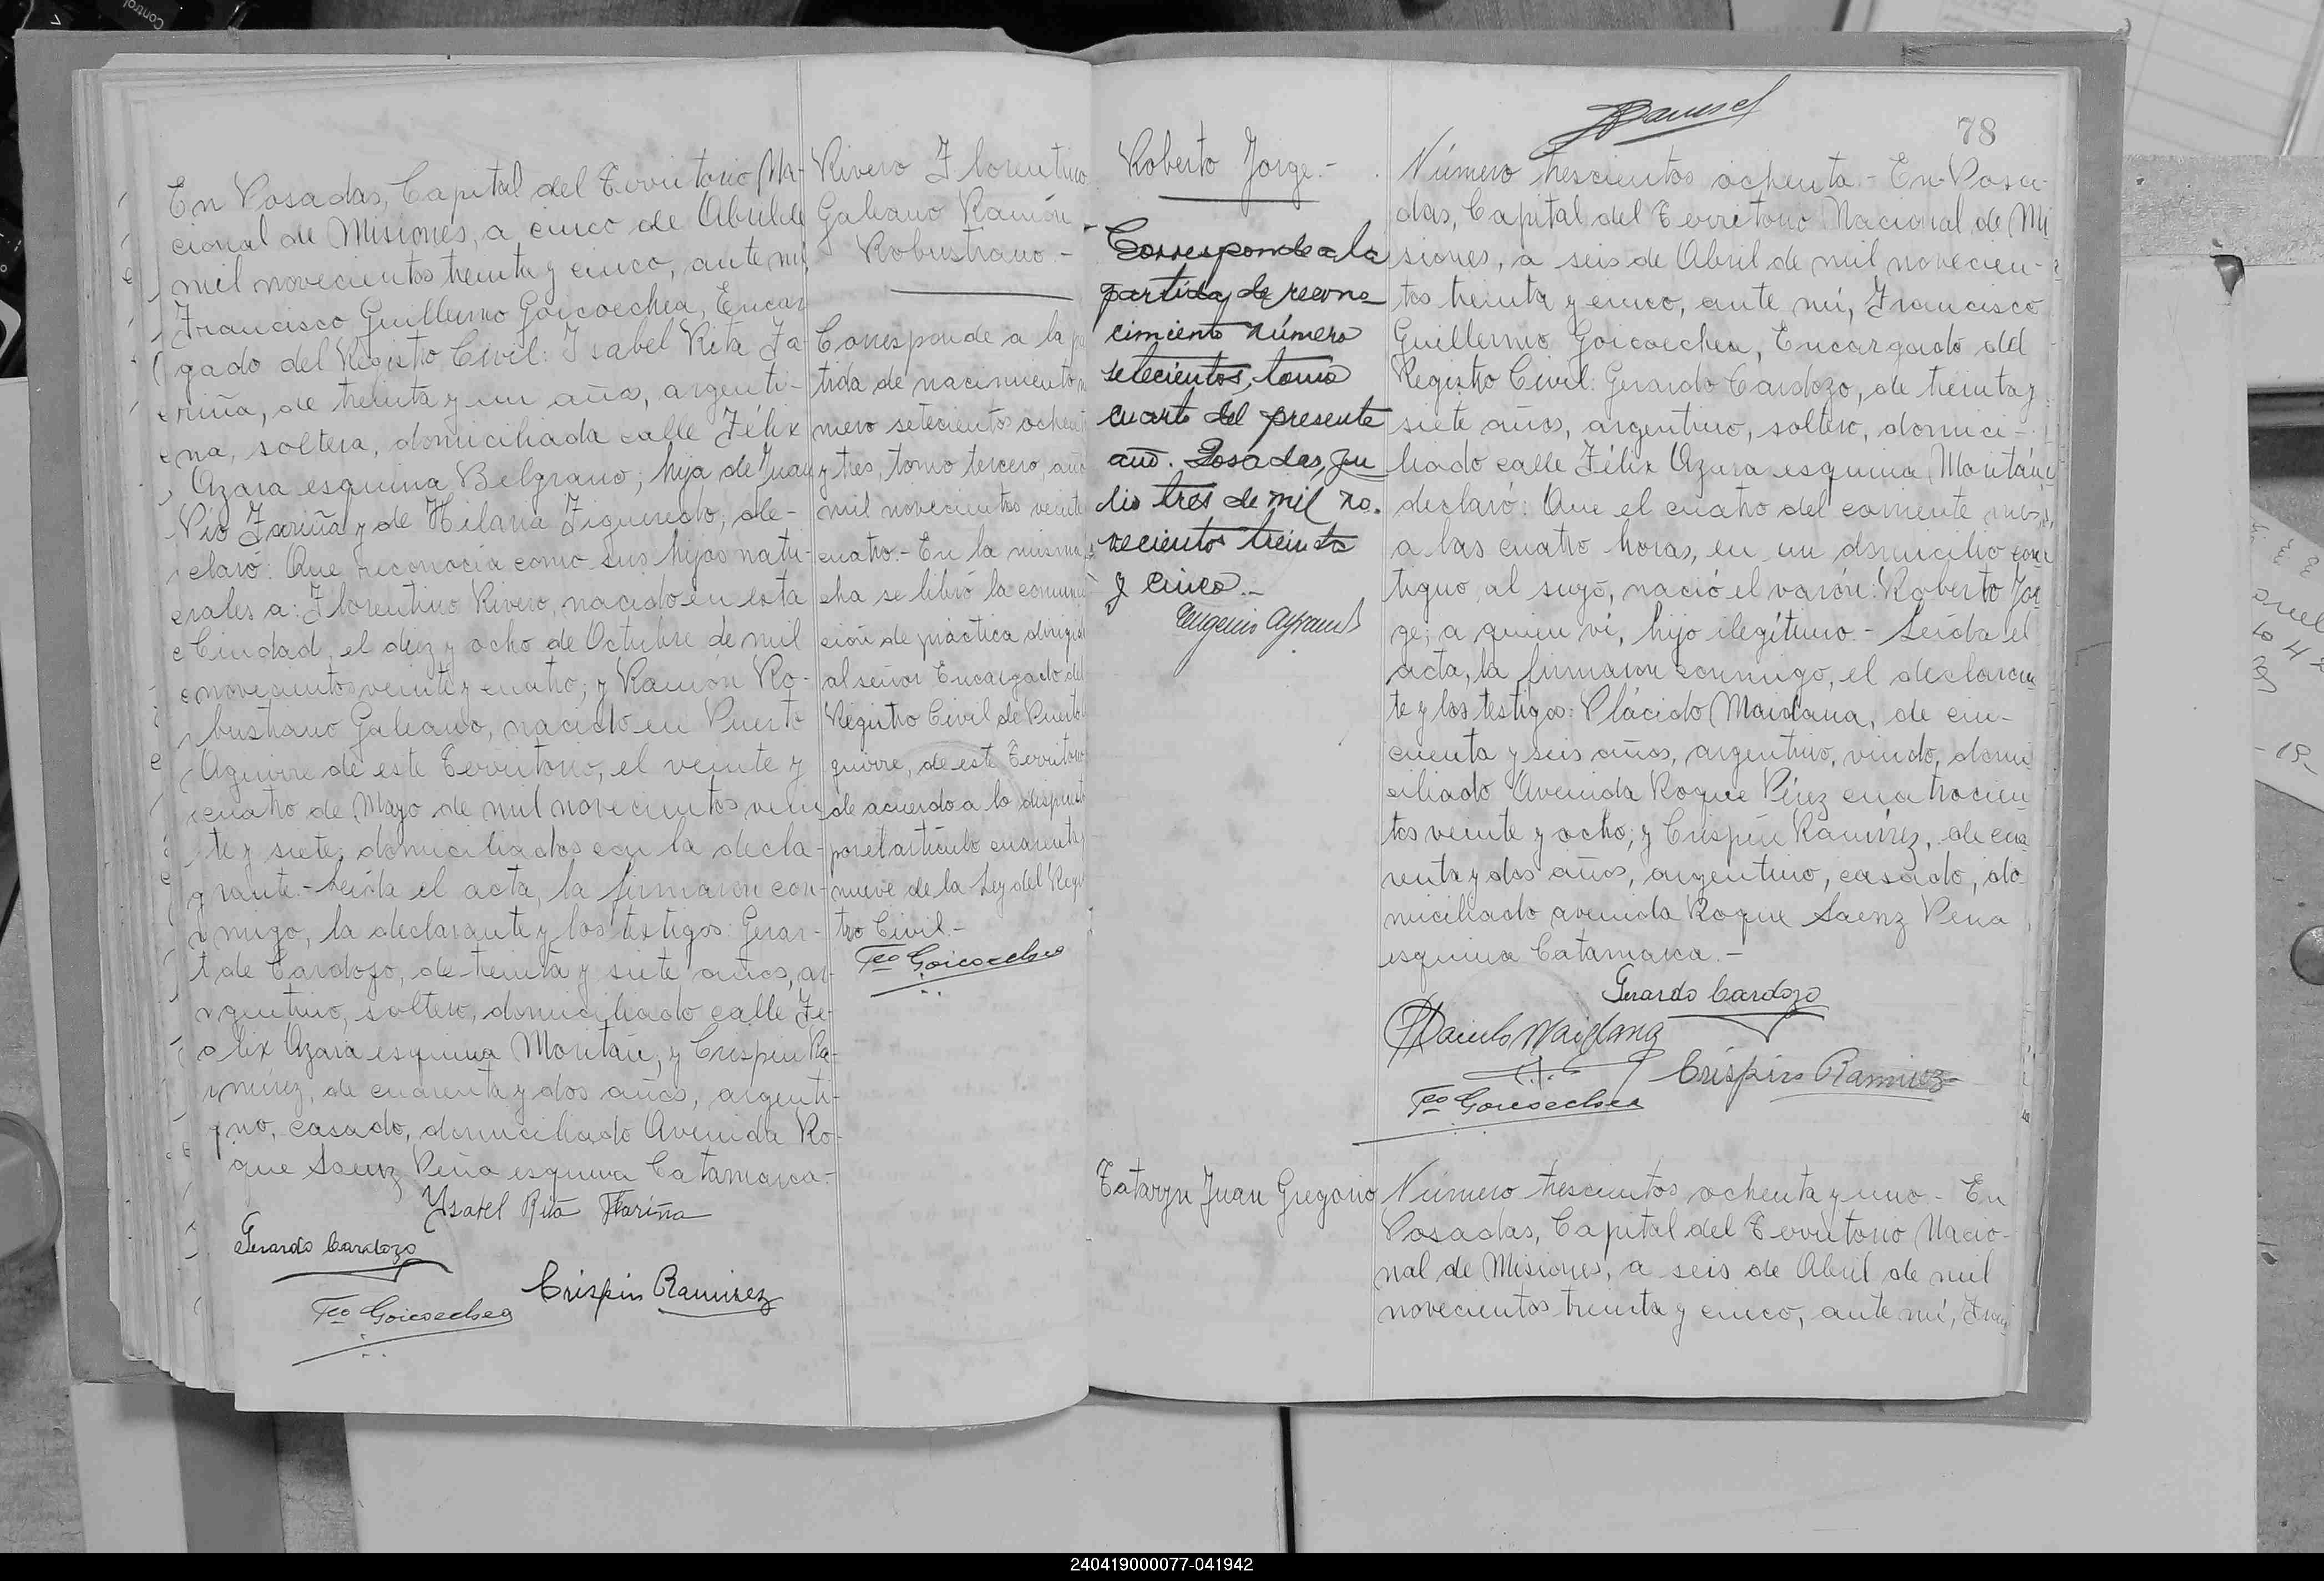 En Posadas, Capital del Territorio Na-
cional de Misiones, a cinco de Abril de
mil novecientos treinta y cinco, ante mí,
Francisco Guillermo Goicoechea, Encar
gado del Registro Civil: Isabel Rita Fa-
riña, de treinta y un años, argenti-
na, soltera, domiciliada calle Félix
Azara esquina Belgrano; hija de Juan
Pío Fariña y de Hilaria Figueredo; de-
claró: Que reconocía como sus hijos natu-
rales a: Florentino Rivero, nacido en esta
Ciudad, el diez y ocho de Octubre de mil
novecientos veinte y cuatro; y Ramón Ro-
bustiano Galeano, nacido en Puerto
Aguirre de este Territorio, el veinte y
cuatro de Mayo de mil novecientos vein
te y siete; domiciliados con la decla-
rante.- Leída el acta, la firmaron con-
migo, la declarante y los testigos: Gerar-
de Cardozo, de treinta y siete años, ar-
gentino, soltero, domiciliado calle Fé-
lix Azara esquina Montán; y Crispin Ra-
mírez, de cuarenta y dos años, argenti-
no, casado, domiciliado Avenida Ro-
que Saenz Peña esquina Catamarca.-
Ysabel Rita Fariña
Gerardo Cardozo
Crispin Ramirez
Fco Goicoechea
Rivero Florentino
Galeano Ramón
Robustiano.-
Corresponde a la
tida de nacimiento
mero setecientos ochen
y tres, tomo tercero, año
mil novecientos veinte
cuatro.- En la misma
cha se libró la comuni
ción de práctica dirigi
al señor Encargado del
Registro Civil de Puerto
guirre, de este Territorio
de acuerdo a lo dispuest
por el artículo cuarenta
nueve de la Ley del Regi
tro Civil.-
Fco Goicoechea
78
Roberto Jorge.-
Corresponde a la
partida de recono
cimiento número
setecientos, tomo
cuarto del presente
año. Posadas, Ju
lio tres de mil no.
vecientos treinta
y cinco.-
Número trescientos ochenta.- En Posa-
das, Capital del Territorio Nacional de Mi
siones, a seis de Abril de mil novecien-
tos treinta y cinco, ante mí, Francisco
Guillermo Goicoechea, Encargado del
Registro Civil: Gerardo Cardozo, de treinta y
siete años, argentino, soltero, domici-
liado calle Félix Azara esquina Montán,
declaró: Que el cuatro del corriente mes,
a las cuatro horas, en un domicilio con
tiguo al suyo, nació el varón: Roberto Jor
ge; a quien ví, hijo ilegítimo.- Leída el
acta, la firmaron conmigo, el declaran
te y los testigos: Plácido Maidana, de cin-
cuenta y seis años, argentino, viudo, domi
ciliado Avenida Roque Pérez cuatrocien
tos veinte y ocho; y Crispin Ramírez, de cua
renta y dos años, argentino, casado, do
miciliado avenida Roque Saenz Pena
esquina Catamarca.-
Gerardo Cardozo
Placido Maidana
Crispin Ramirez
Fco Goicoechea
Tataryn Juan Gregorio
Número trescientos ochenta y uno.- En
Posadas, Capital del Territorio Nacio-
nal de Misiones, a seis de Abril de mil
novecientos treinta y cinco, ante mí, Fran
240419000077-041942